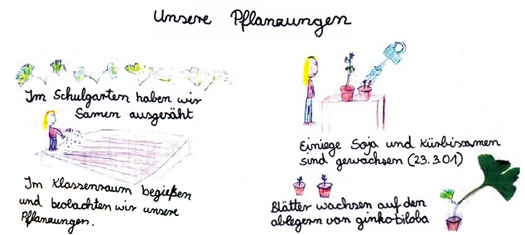 Unsere Pflanzungen
Im Schulgarten haben wir
Samen ausgesäht
Im Klassenraum begießen
und beobachten wir unsere
Pflanzungen.
Einiege Soja und Kürbissamen
sind gewachsen (23.3.01)
Blätter wachsen auf den
ablegern von ginko-biloba